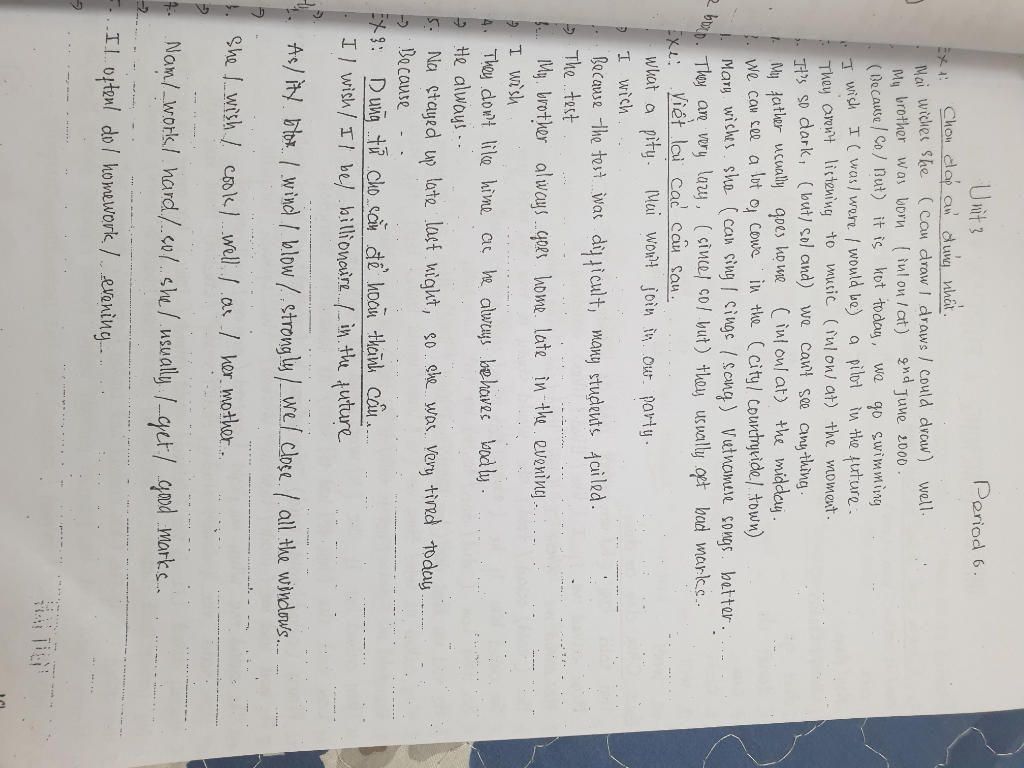 Unit 3
Period 6.
Ex 1: Chọn đáp án đúng nhất.
Mai wishes she (can draw / draws / could draw) well.
My brother was born (in/on/at) 2nd June 2000.
(Because / So / but) it is hot today, we go swimming
I wish I (was/were/would be) a pilot in the future.
They aren't listening to music (in/on/at) the moment.
It's so dark, (but/so/and) we can't see anything.
My father usually goes home (in/on/at) the midday.
We can see a lot of cows in the (city/countryside/town)
Mary wishes she (can sing / sings / sang) Vietnamese songs better.
They are very lazy, (since/so/but) they usually get bad marks.
Ex: Viết lại các câu sau.
What a pity. Mai won't join in our party.
→ I wish
Because the test was difficult, many students failed.
→ The test
3. My brother always goes home late in the evening.
→ I wish
4. They don't like hime as he always behaves badly.
→ He always
5. Na stayed up late last night, so she was very tired today
→ Because
Ex 3: Dùng từ cho sẵn để hoàn thành câu.
I / wish / I / be / billionaire / in the future
→
As / it / / wind / blow / strongly / we / close / all the windows.
→
She / wish / cook / well / as / her mother.
→
Nam / work / hard / so / she / usually / get / good marks.
→
5. I / often / do / homework / evening.
→